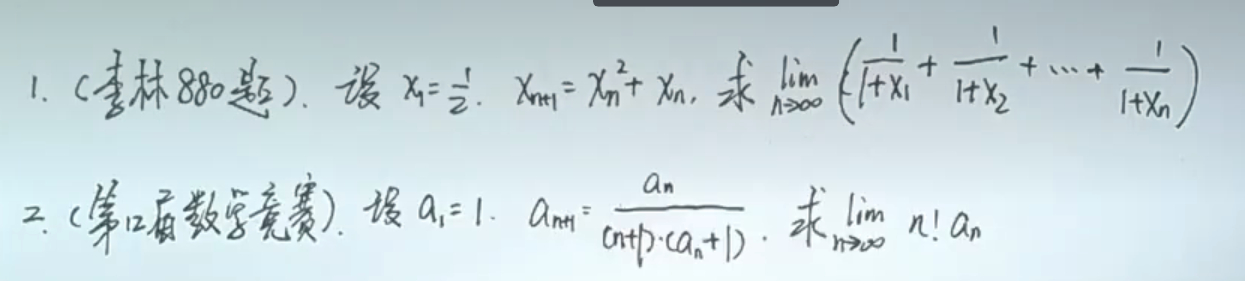 1. (李林880题). 设 x₁=1/2. xₙ₊₁=xₙ²+xₙ, 求 lim n→∞ (1/(1+x₁) + 1/(1+x₂) + ⋯ + 1/(1+xₙ))
2. (第12届数学竞赛). 设 a₁=1. aₙ₊₁= aₙ/((n+1)·(aₙ+1)). 求 lim n→∞ n! aₙ